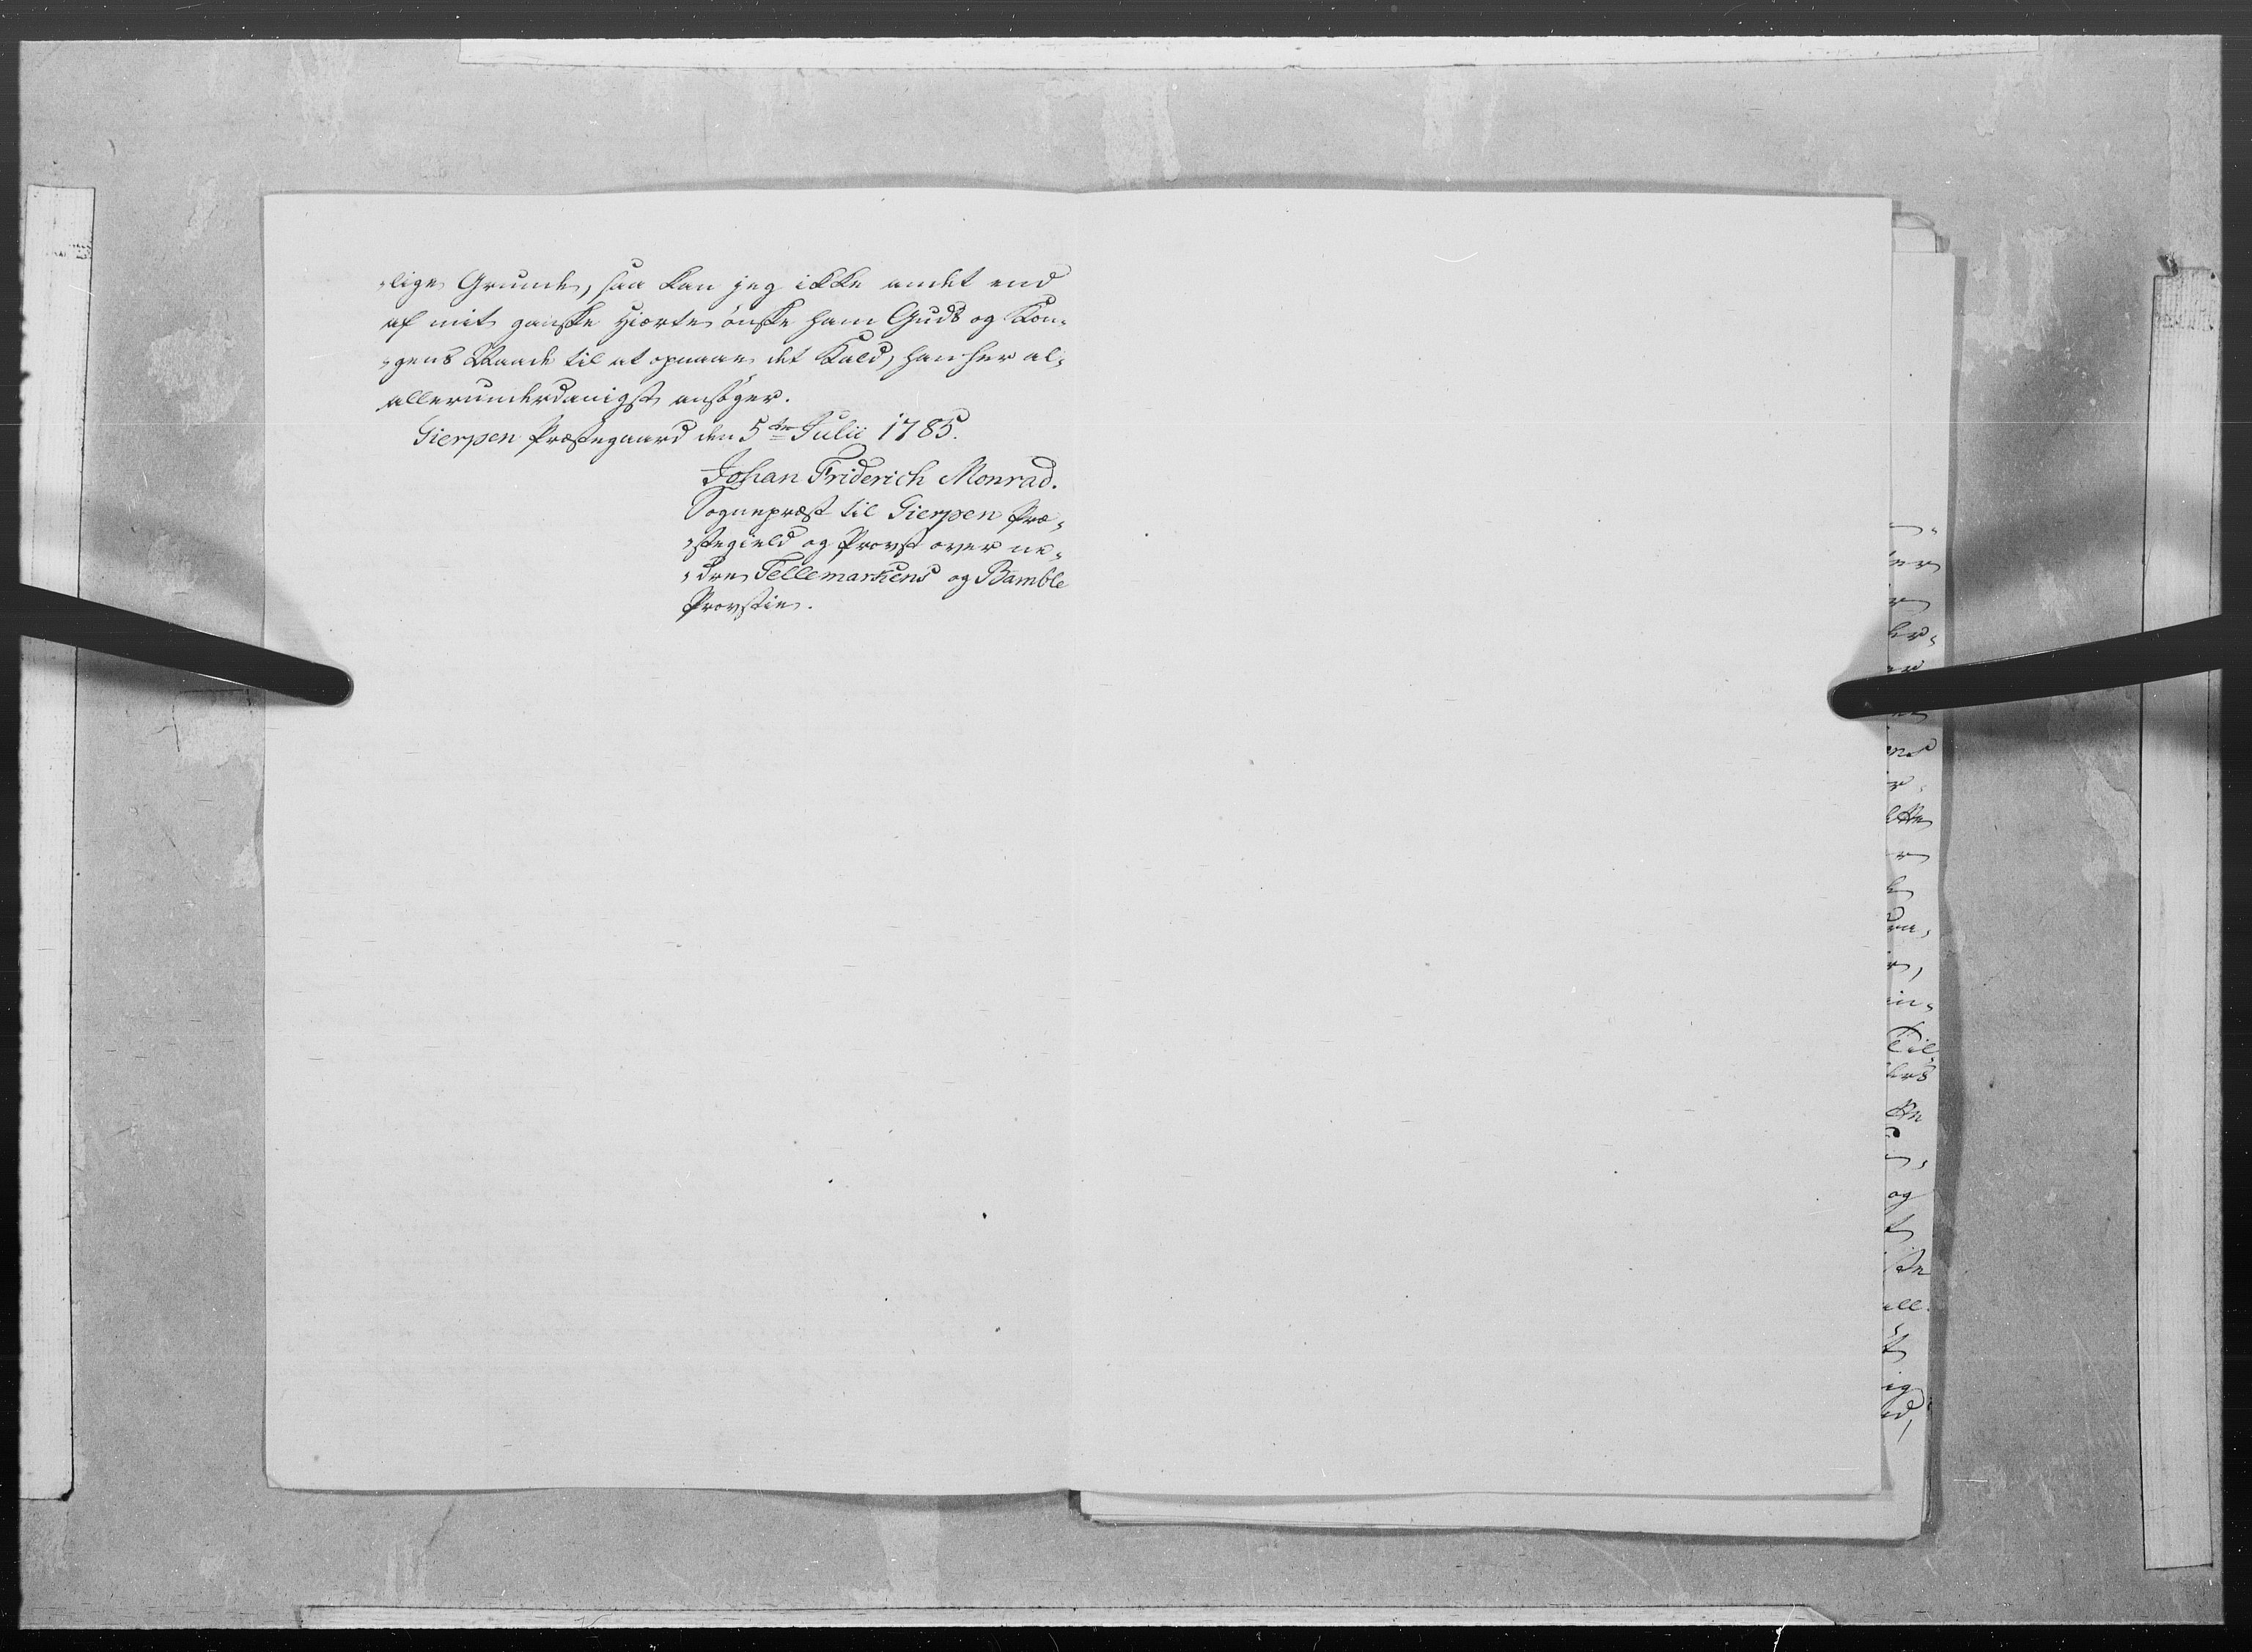 -lige Grunde, saa kan jeg ikke andet end
af mit ganske Hierte ønske ham Guds og Kon-
-gens Naade til at opnaae det Kald, han her al-
allerunderdanigst ansøger.
Gierpen Præstegaard den 5te Julii 1785.
Johan Friderich Monrad.
Sognepræst til Gierpen Præ-
-stegield og Provst over ne-
-dre Tellemarkens og Bamble
Provstie.